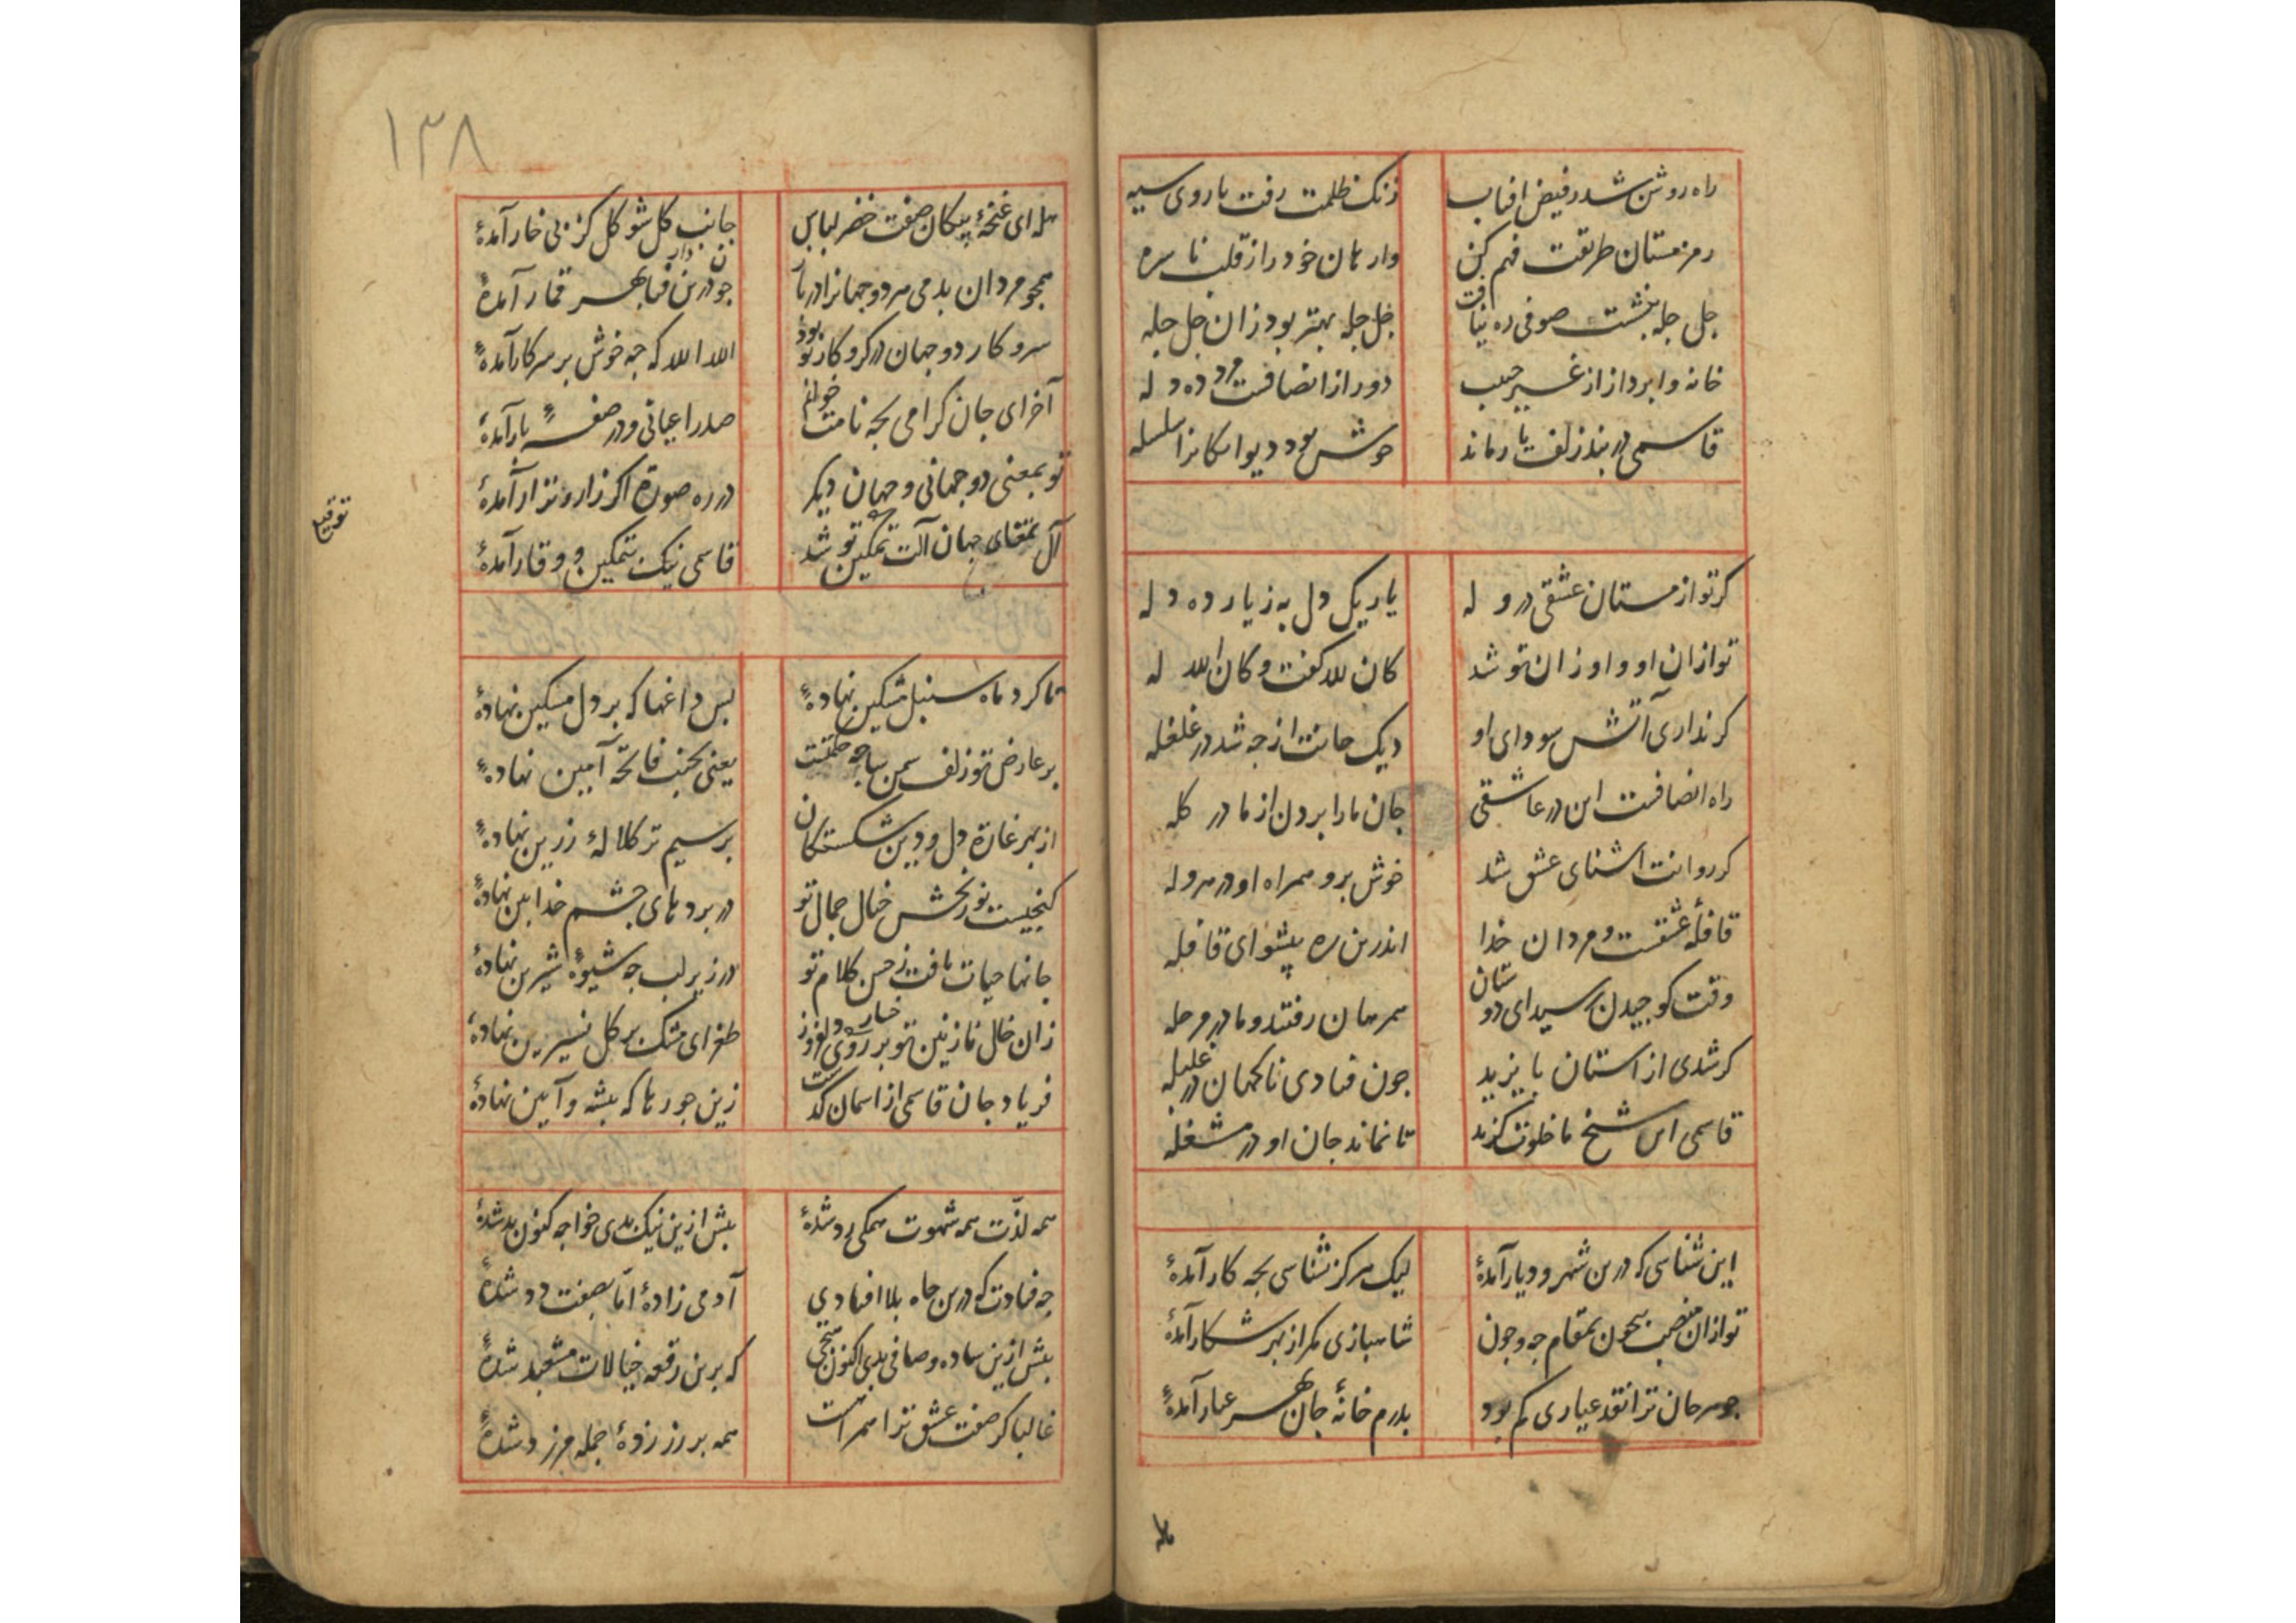 راه روشن شد ز فیض افتاب
زنک ظلمت رفت با روی سیه
رمز مستان طریقت فهم کن
وارهان خود را از قلب ناسره
جل جله بنشست صوفی ره نیافت
خل جله بهتر بود زان جل جله
خانه وا پرداز از غیر حبیب
دور از انصافست مرد ده دله
قاسمی در بند زلف یار ماند
خوش بود دیوانکانرا سلسله
کر تو از مستان عشقی در وله
یار یکدل به ز یار ده دله
تو ازان او و او زان تو شد
کان لله کفت و کان الله له
کر نداری آتش سودای او
دیک جانت از جه شد در غلغله
راه انصافست این در عاشقی
جان ما را برون از ما در کله
کر روانت اشنای عشق شد
خوش برو همراه او در هروله
قافله عشقست و مردان خدا
اندرین ره پیشوای قافله
وقت کوجیدن رسید ای دوستان
همرهان رفتند و ما در مرحله
کر شدی از استان بایزید
جون فتادی ناکهان در
قاسمی این شیخ ما خلوت کزید
تا نماند جان او در مشغله
این شناسی که درین شهر و دیار آمدهٔ
لیک هرکز نشناسی بجه کار آمدهٔ
تو ازان منصب بیجون بمقام جه و جون
شاهبازی مکر از بهر شکار آمدهٔ
جوهر جان ترا نقد عیاری کم بود
بدرم خانهٔ جان بهر عیار آمدهٔ
۱۳۸
هله ای غنجهٔ پیکان صفت خضر لباس
جانب کل شو کل کز بی خار آمدهٔ
همجو مردان بدمی هر دو جهانرا در باز
جو درین دار فنا بهر قمار آمدهٔ
سر و کار دو جهان در کرو کار تو بود
الله الله که جه خوش بر سر کار آمدهٔ
آخر ای جان کرامی بجه نامت خوانم
صدر اعیانی و در صفهٔ بار آمدهٔ
تو بمعنی دو جهانی و جهان دیکر
در ره صورة اکر زار و نزار آمدهٔ
آل تمقای جهان آلت تمکین تو شد
قاسمی نیک بتمکین و وقار آمدهٔ
تا کرد ماه سنبل مشکین نهادهٔ
بس داغها که بر دل مسکین نهادهٔ
بر عارض تو زلف سمن سا جه حکمتست
یعنی بجنب فاتحه آمین نهادهٔ
از بهر غارة دل و دین شکستکان
بر سیم تر کلالهٔ زرین نهادهٔ
کنجیست نوربخش خیال جمال تو
در بردهای جشم خدابین نهادهٔ
جانها حیات یافت ز حسن کلام تو
در زیر لب جه شیوهٔ شیرین نهادهٔ
زان خال نازنین تو بر روی دلفروز
طغرای مشک بر کل نسرین نهادهٔ
فریاد جان قاسمی از اسمان کذشت
زین جورها که بیشه و آیین نهادهٔ
همه لذّت همه شهوت همکی رد شدهٔ
بیش ازین نیک بدی خواجه کنون بد شدهٔ
جه فتادت که درین جاه بلا افتادی
آدمی زادهٔ امّا بصفت دد شدهٔ
بیش ازین ساده و صافی بدی اکنون
که برین رقعه خیالات مشعبد شدهٔ
غالبا کز صفت عشق ترا همراهست
همه بر رز زدهٔ جمله مرزد شدهٔ